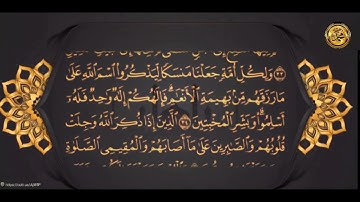 وَلِكُلِّ أُمَّةٍ جَعَلْنَا مَنسَكًا لِّيَذْكُرُوا۟ ٱسْمَ ٱللَّهِ عَلَىٰ
مَا رَزَقَهُم مِّنۢ بَهِيمَةِ ٱلْأَنْعَٰمِ ۗ فَإِلَٰهُكُمْ إِلَٰهٌ وَٰحِدٌ فَلَهُۥٓ
أَسْلِمُوا۟ ۗ وَبَشِّرِ ٱلْمُخْبِتِينَ ٣٤ ٱلَّذِينَ إِذَا ذُكِرَ ٱللَّهُ وَجِلَتْ
قُلُوبُهُمْ وَٱلصَّٰبِرِينَ عَلَىٰ مَآ أَصَابَهُمْ وَٱلْمُقِيمِى ٱلصَّلَوٰةِ